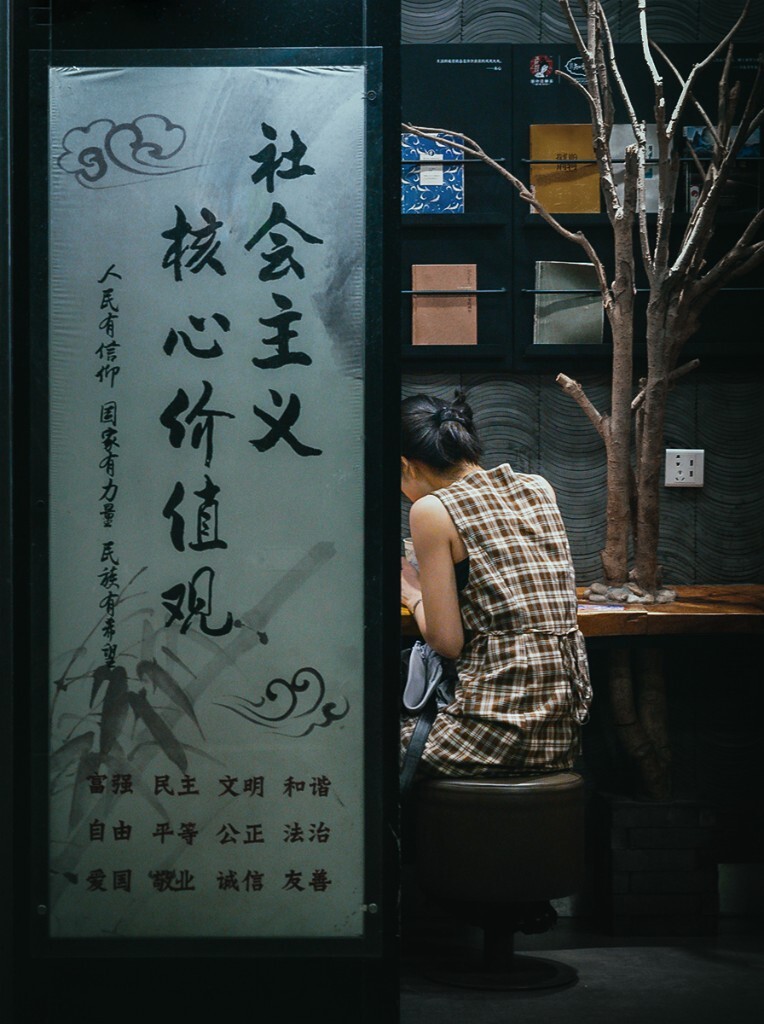 社会主义
核心价值观
人民有信仰 国家有力量 民族有希望
富强 民主 文明 和谐
自由 平等 公正 法治
爱国 敬业 诚信 友善